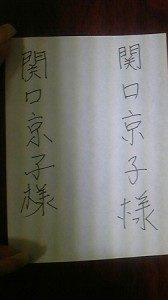 関口京子様
関口京子様